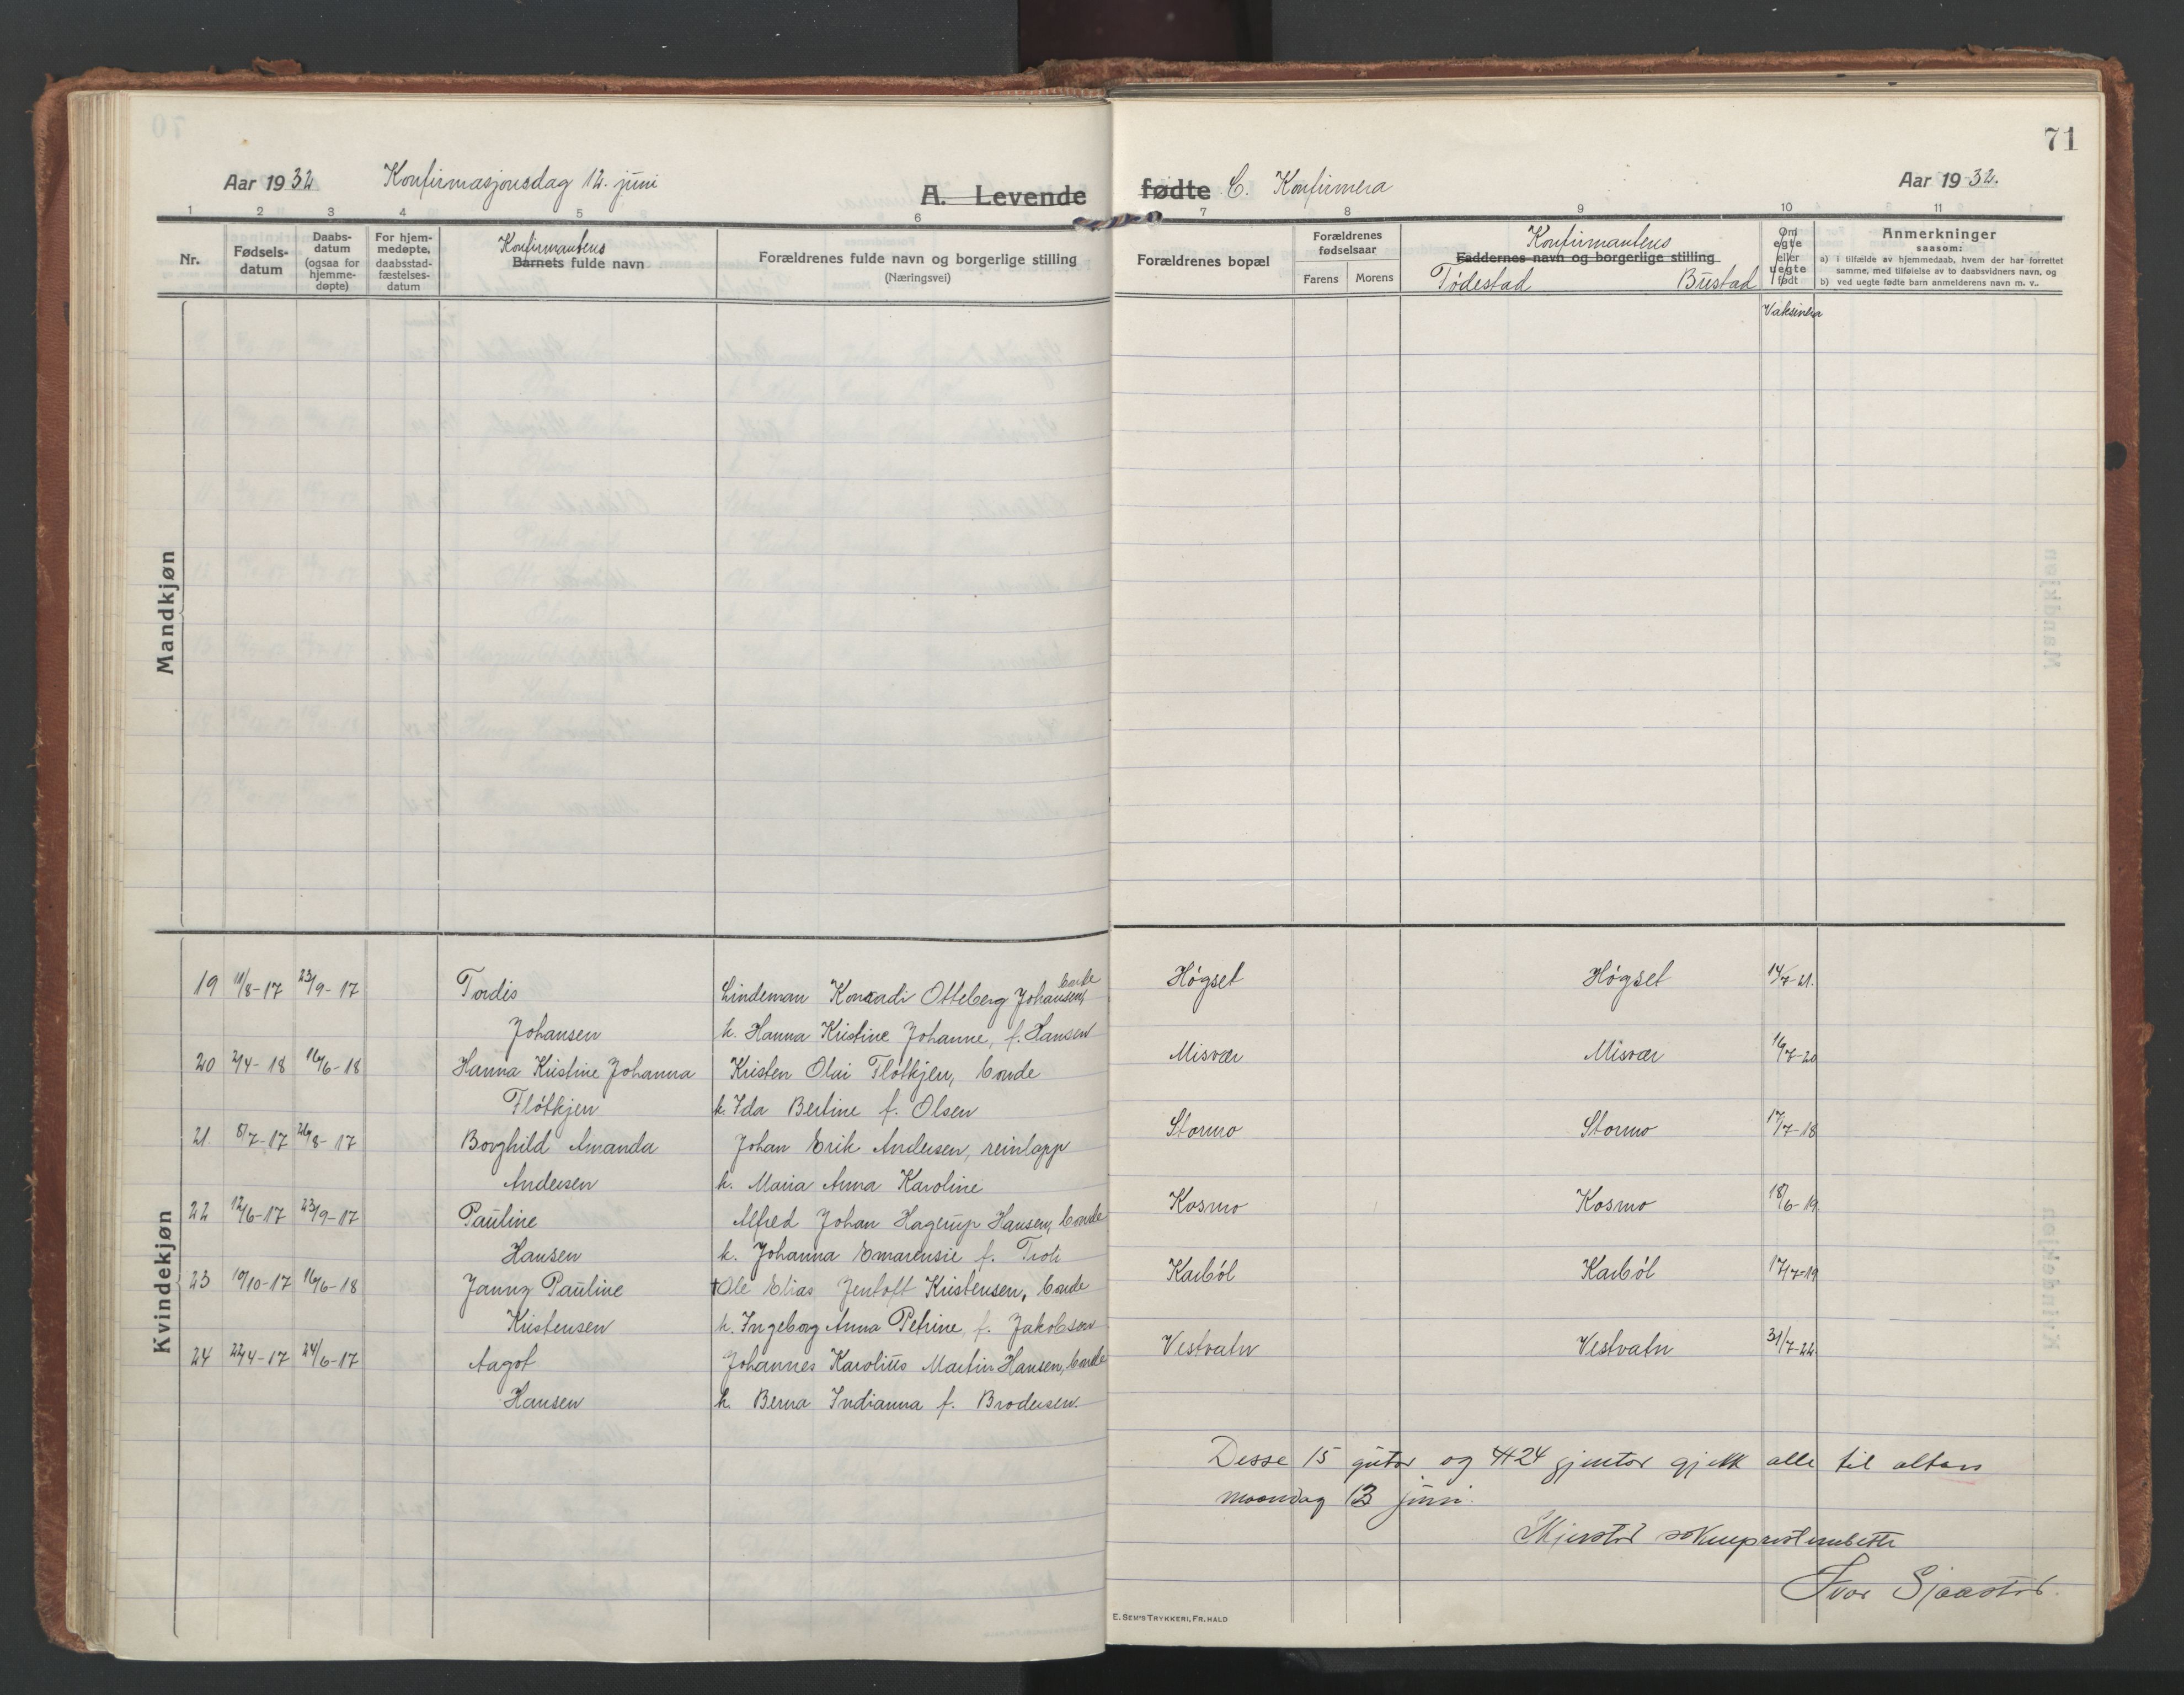 71
Aar 1932 Konfirmasjonsdag 12. juni A. Levende fødte C. Konfirmera Aar 1932.
1 2 3 4 5 6 7 8 9 10 11
Nr. Fødsels-datum Daabs-datum (ogsaa for hjemme-døpte) For hjem-medøpte, daabsstad-fæstelses-datum Konfirmantens Barnets fulde navn Forældrenes fulde navn og borgerlige stilling (Næringsvei) Forældrenes bopæl Forældrenes fødselsaar Farens Morens Konfirmantens Faddernes navn og borgerlige stilling Fødestad Bustad Om egte eller uegte født Anmerkninger saasom:
a) i tilfælde av hjemmedaab, hvem der har forrettet samme, med tilføielse av to daabsvidners navn, og
b) ved uegte fødte barn anmelderens navn m. v..
Vaksinera
Mandkjøn
Kvindekjøn
19 11/8-17 23/9-17 Tordis Lindeman Konradi Otteberg Johansen, bonde Høgset Høgset 14/7-21.
Johansen h. Hanna Kristine Johanne, f. Hansen
20 2/4-18 16/6-18 Hanna Kristine Johanna Kristen Olai Fløtkjer, bonde Misvær Misvær 16/7-20
Fløtkjer h. Ida Bertine f. Olsen
21. 8/7-17 26/8-17 Borghild Amanda Johan Erik Andersen, reinlapp Stormo Stormo 17/7-18
Andersen h. Maria Anna Karoline
22 12/6-17 23/9-17 Pauline Alfred Johan Hagerup Hansen, bonde Kosmo Kosmo 18/6-19.
Hansen h. Johanna Emarensie f. Troli
23 10/10-17 16/6-18 Janny Pauline †Ole Elias Jentoft Kristensen, bonde Karbøl Karbøl 17/7-19
Kristensen h. Ingeborg Anna Petrine, f. Jakobsen
24 22/4-17 24/6-17 Aagot Johannes Karolius Martin Hansen, bonde Vestvatn Vestvatn 31/7-22
Hansen h. Berna Indianna f. Brodersen.
Desse 15 gutar og 24 gjentor gjekk alle til altars
maandag 13 juni.
Skjerstad sokneprestembette
Ivar Sjaastad.
E. SEM'S TRYKKERI, FR.HALD